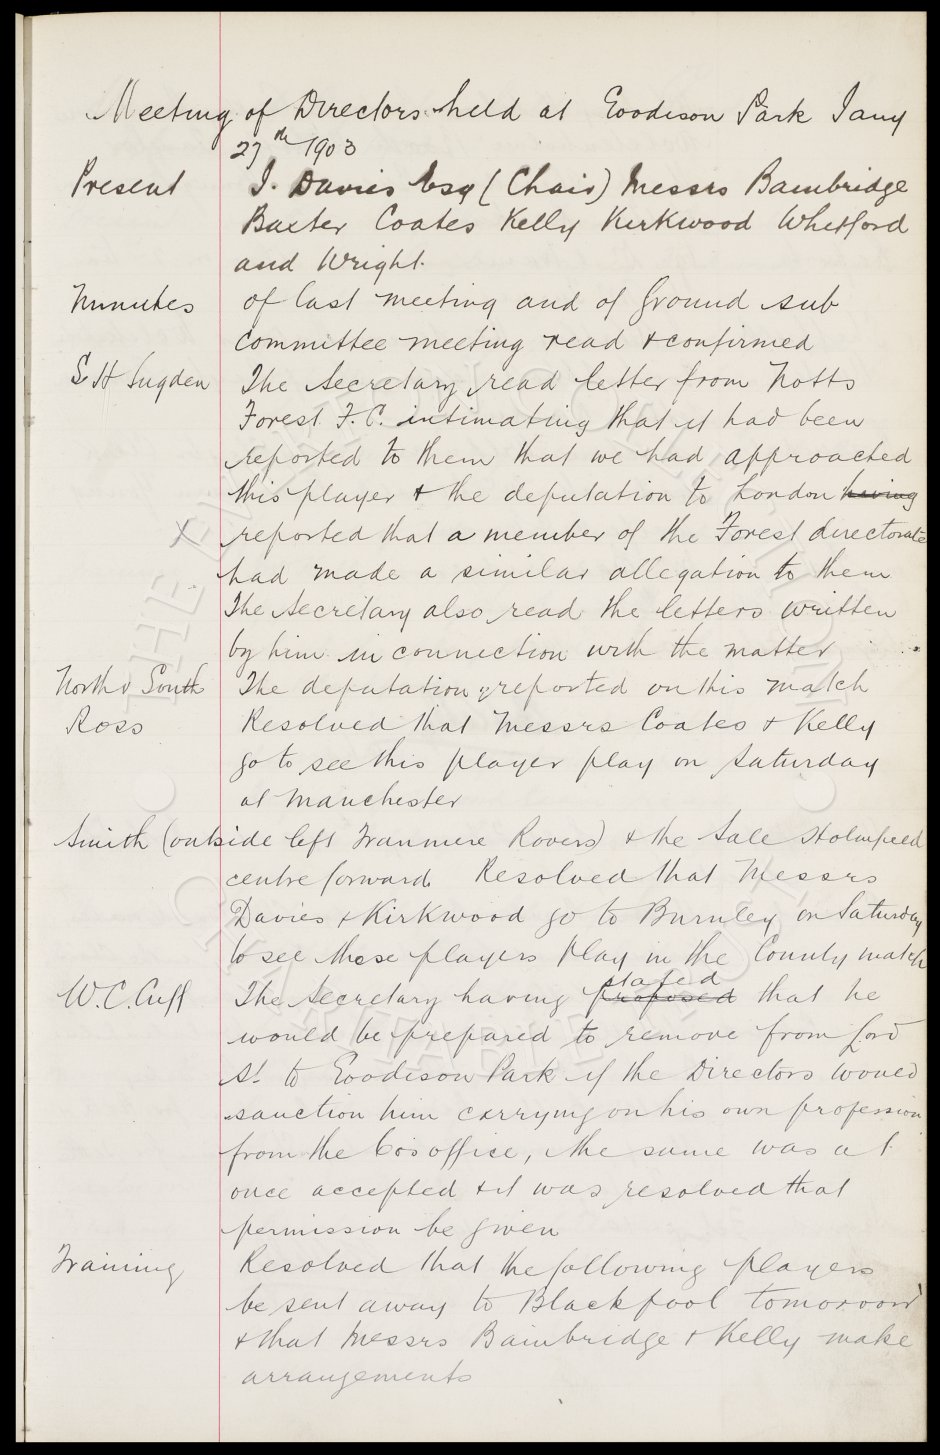 Meeting of Directors held at Goodison Park Jany
27th 1903
Present J. Davies Esq (Chair) Messrs Bainbridge
Baxter Coates Kelly Kirkwood Whitford
and Wright.
Minutes of last meeting and of Ground sub
committee meeting read & confirmed
S H Sugden The Secretary read letter from Notts
Forest F.C. intimating that it had been
reported to them that we had approached
this player & the deputation to London having
X reported that a member of the Forest directorate
had made a similar allegation to them
The Secretary also read the letters written
by him in connection with the matter
North v South The deputation reported on this match
Ross Resolved that Messrs Coates & Kelly
go to see this player play on Saturday
at Manchester
Smith (outside left Tranmere Rovers) & the Sale Holmfield
centre forward. Resolved that Messrs
Davies & Kirkwood go to Burnley on Saturday
to see these players play in the County match
W.C. Cuff The Secretary having proposed stated that he
would be prepared to remove from Lord
St. to Goodison Park if the Directors would
sanction him carrying on his own profession
from the Co's office, the same was at
once accepted & it was resolved that
permission be given
Training Resolved that the following players
be sent away to Blackpool tomorrow
& that Messrs Bainbridge & Kelly make
arrangements